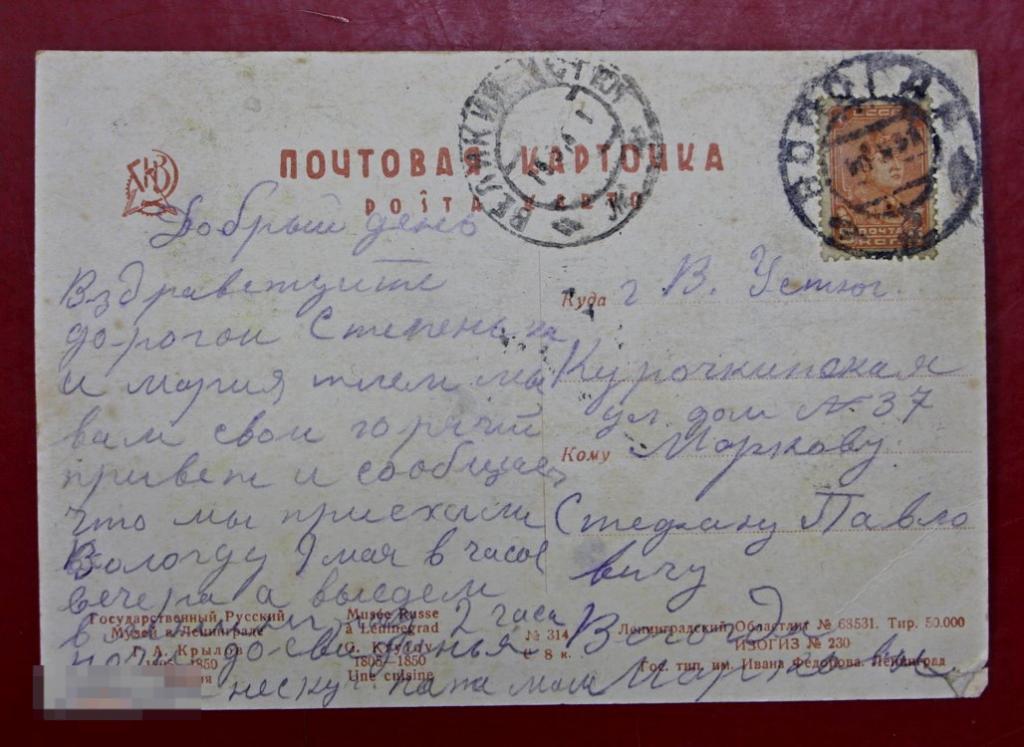 ПОЧТОВАЯ КАРТОЧКА
POŜTA KARTO
ВЕЛИКИЙ УСТЮГ
ВОЛОГДА
ПОЧТА
КОП
Добрый день
Вздравствуйте
дорогой Степень ка
и мария шлем мы
вам свой горячий
привет и сообщаем
что мы приехали
Вологду 9 мая в часов
вечера а выедем
2 часа
ночи до-свиданья
Куда г В. Устюг.
Курочкинская
ул. дом № 37
Кому Маркову
Стефану Павло
вичу
Марковы
Государственный Русский
Музей в Ленинграде
Г. А. Крылов
1805—1850
Musée Russe
à Léningrad
G. Krylov
1805—1850
Une cuisine
№ 314
С 8 к.
Ленинградский Областлит № 63531. Тир. 50.000
ИЗОГИЗ № 230
Гос. тип. им. Ивана Федорова. Ленинград